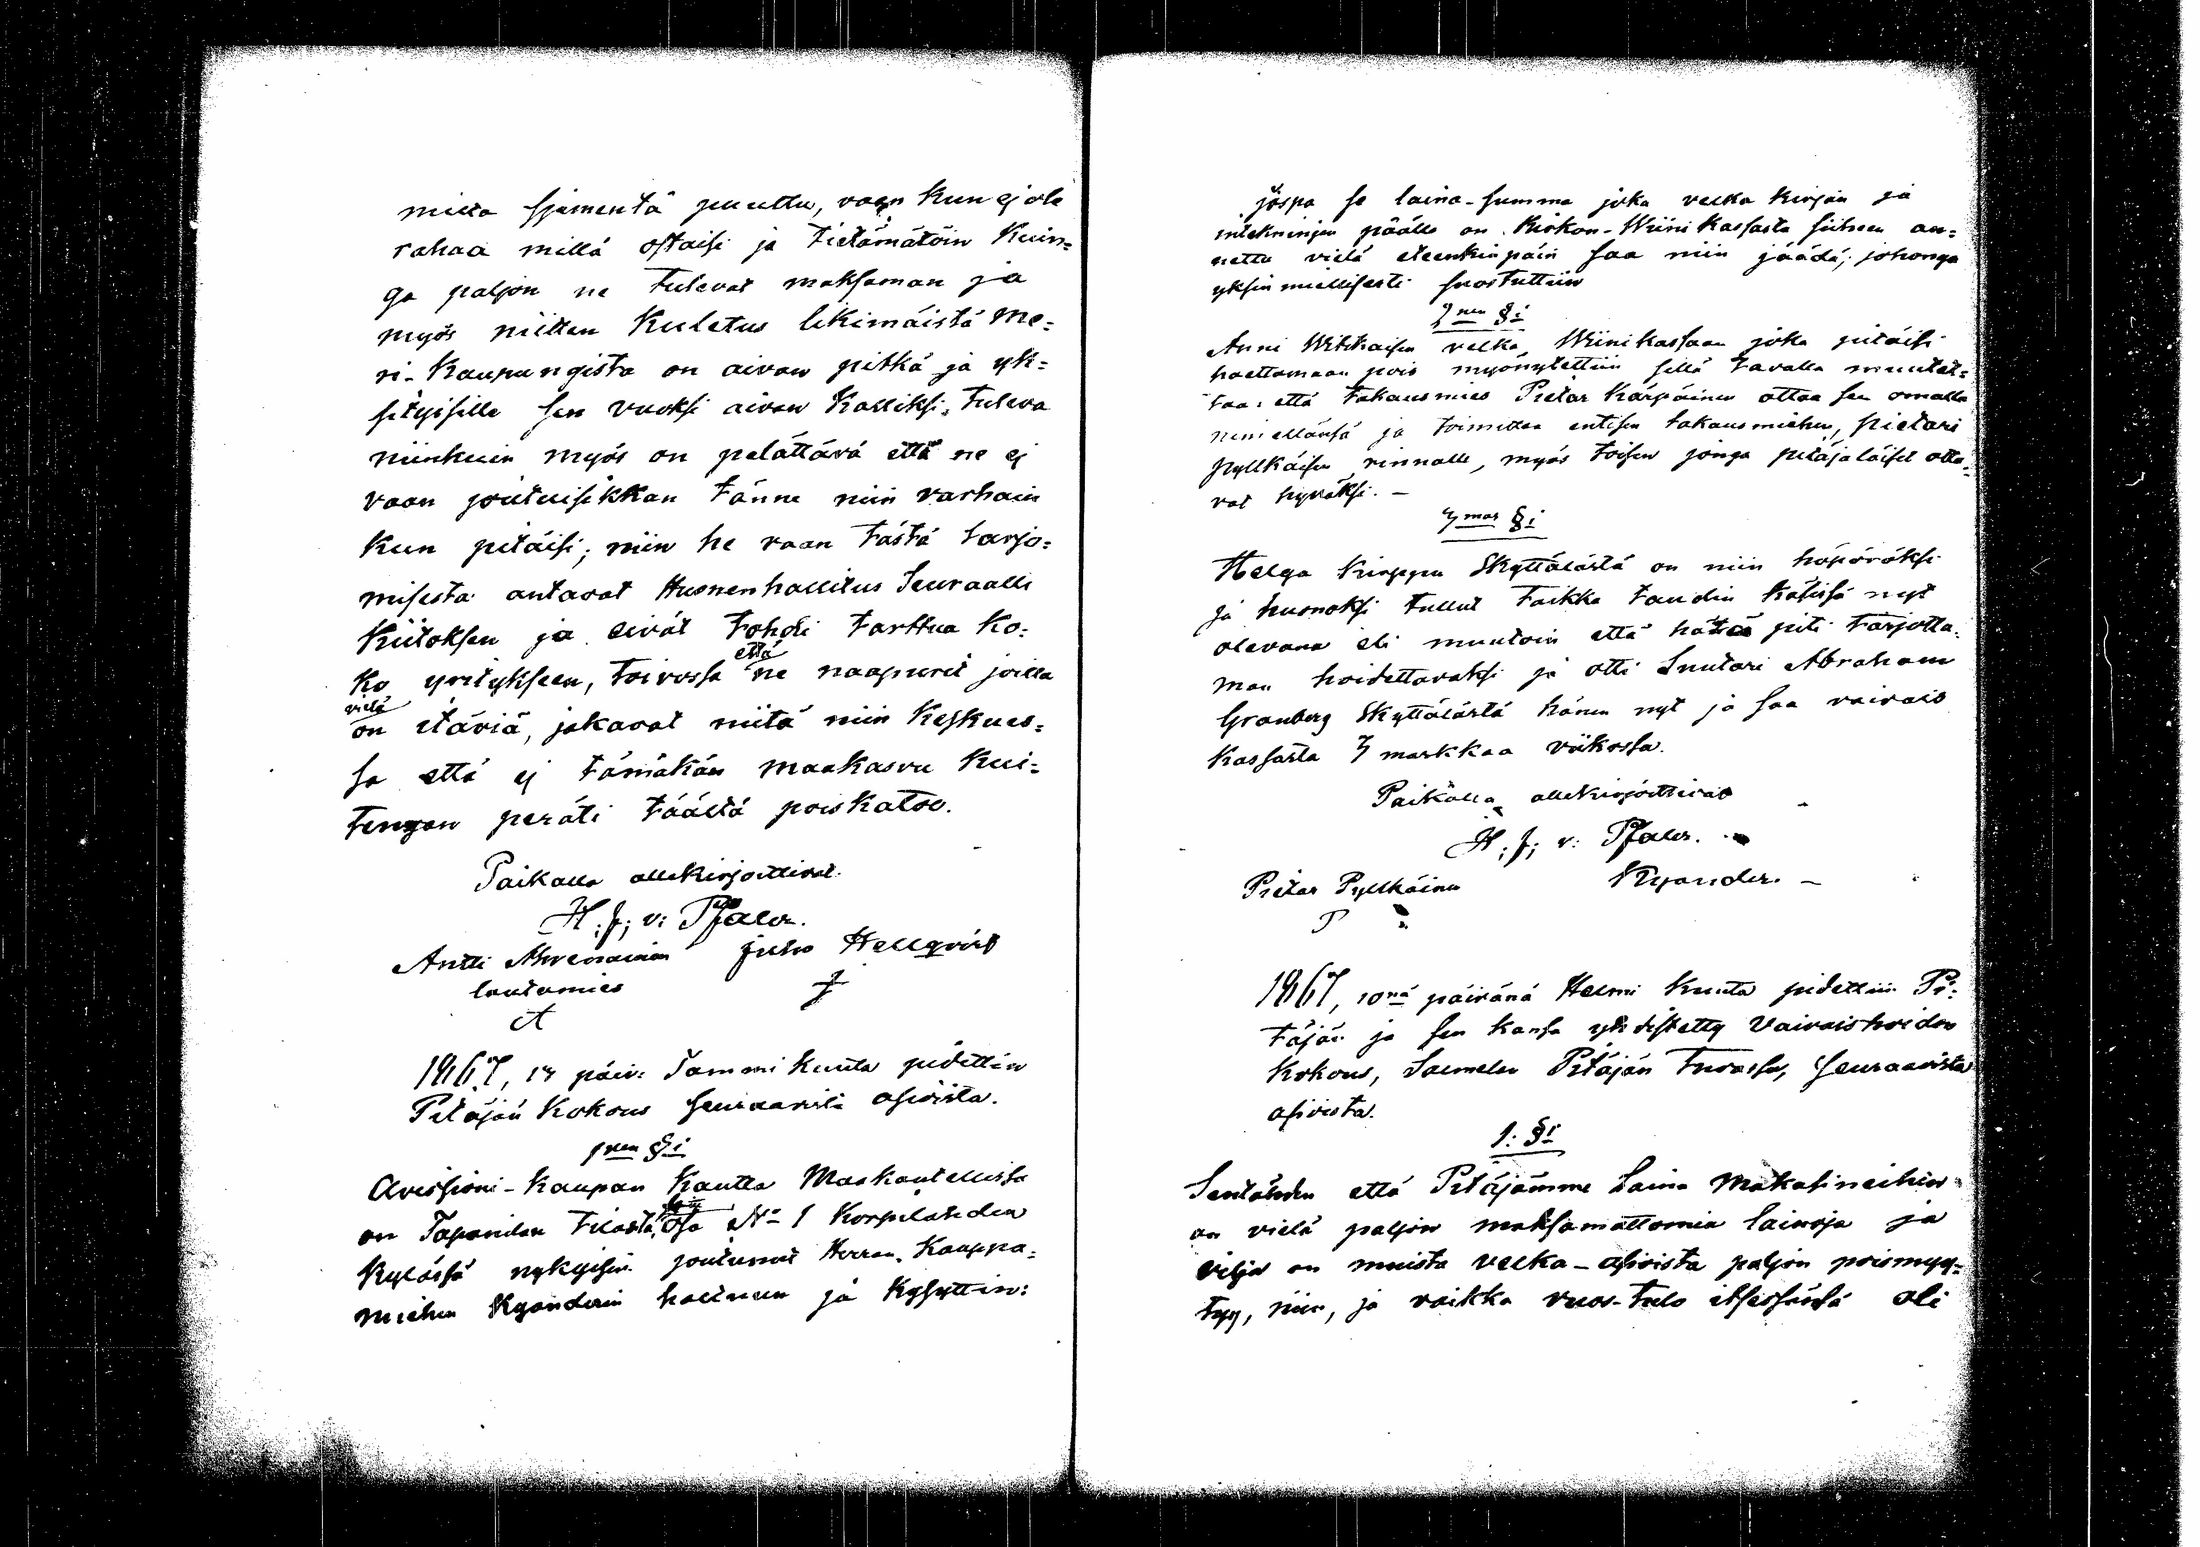 milta sjementä puuttu, vaan kun ej ole
rahaa millä ostaisi ja tietämätöin kuin=
ga paljon ne tulevat maksaman ja
myös niitten kuletus likimäistä me=
ri-kaupungista on aivan pitkä ja yk=
sityisille sen vuoksi aivan kalliksi tuleva
niinkuin myös on pelättävä että ne ej
vaan joutuisikkan tänne niin varhain
kun pitäisi; niin he vaan tästä tarjo=
misesta antavat Huonenhallitus Seuraalle
kiitoksen ja eivät tohdi tarttua ko=
ko yritykseen, toivossa että ne naapurit joilla
vielä on itäviä, jakavat niitä niin keskues=
sa että ej tämäkän maakasvu kui=
tengan peräti täältä poiskatoo.
Paikalla allekirjoittivat.
H. J; v: Pfaler.
Antti Ahvenainen Juho Hellqvist
lautamies
A
1867, 14 päiv: Tammi kuuta pidettin
Pitäjän kokous seuraavista asioista.
1nen §i
Avissioni-kaupan kautta Maakantelissa
on Tapanilan tilasta, osa No 1 Korpilahden
kylässä nykyisin joutunut Herran, Kauppa=
miehen Kyanderin haltuun ja kysyttin:
jospa se laina-summa joka velka kirjan ja
intekningin päälle on Kirkon-Wiini kassasta siihen an=
nettu vielä eteenkinpäin saa niin jäädä; johonga
yksinmiellisesti suostuttiin
2nen §i
Anni Witikaisen velka Wiinikassaan joka pitäisi
haettamaan pois myönytettiin sillä tavalla muutet=
taa: että takausmies Pietar Kärpäinen ottaa sen omalla
nimellänsä ja toimittaa entisen takausmiehen, Pietari
Pyllkäisen rinnalle, myös toisen jonga pitäjäläiset otta=
vat hyväksi. —
3mas §i
Helga Kirppu Skyttälästä on niin höpöröksi
ja huonoksi tullut taikka taudin käsissä nyt
olevana eli muutoin että häntä piti tarjotta=
man hoidettavaksi ja otti Suutari Abraham
Granberg Skyttälästä hänen nyt ja saa vaivais
kassasta 3 markkaa viikossa.
Paikalla allekirjoittivat
H. J; v: Pfaler.
Pietar Pyllkäinen Kyander. —
P
1867, 10nä päivänä Helmi kuuta pidettiin Pi=
täjän ja sen kansa yhdistetty Vaivaishoidon
kokous, Saemelan Pitäjän tuvassa, seuraavista
asioista.
1: §i
Sentähden että Pitäjämme Laina Makasineihin
on vielä paljon maksamattomia lainoja ja
vilja on muista velka-asioista paljon poismyy=
tyy, niin, ja vaikka vuos-tulo itsessänsä oli